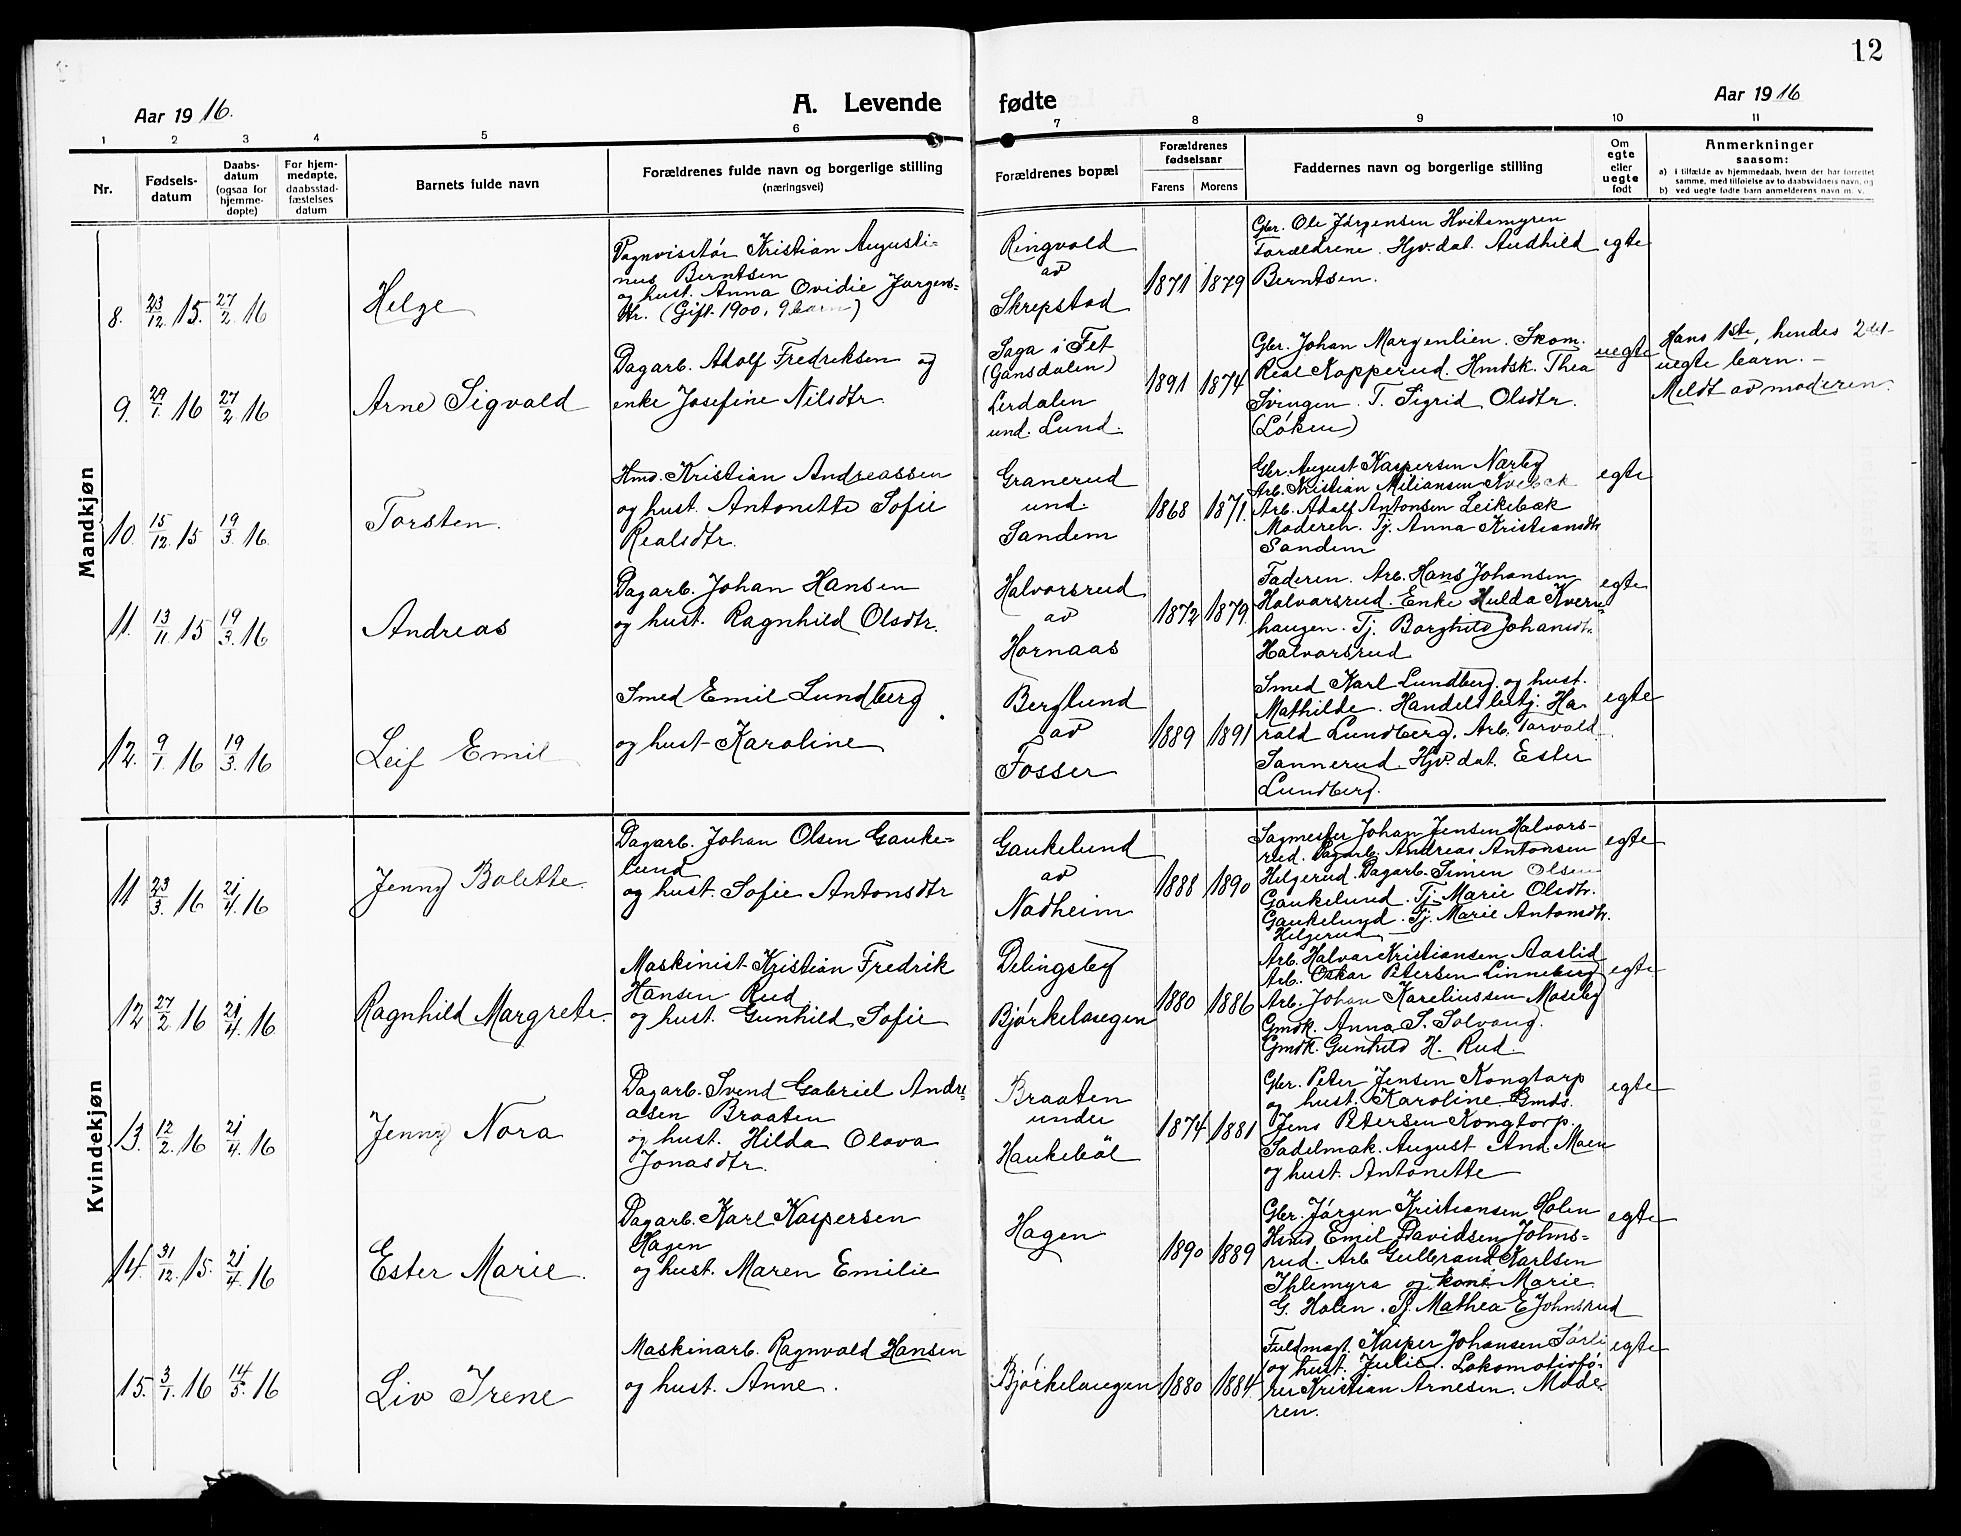 12
Aar 1916.
A. Levende
fødte
Aar 1916
1 2 3 4 5 6 7 8 9 10 11
Nr.
Fødsels-
datum
Daabs-
datum
(ogsaa for
hjemme-
døpte)
For hjem-
medøpte,
daabsstad-
fæstelses
datum
Barnets fulde navn
Forældrenes fulde navn og borgerlige stilling
(næringsvei)
Forældrenes bopæl
Forældrenes
fødselsaar
Farens Morens
Faddernes navn og borgerlige stilling
Om
egte
eller
uegte
født
Anmerkninger
saasom:
a) i tilfælde av hjemmedaab, hvem der har forrettet
samme, med tilføielse av to daabsvidners navn, og
b) ved uegte fødte barn anmelderens navn m. v.
Mandkjøn
8. 23/12. 15. 27/2. 16
Helge
Vognvisitør Kristian Augusti-
nus Berntsen
og hust. Anna Ovidie Jørgens-
dtr. (Gift 1900, 9 barn)
Ringvold
av
Skrepstad
1871 1879
Gbr. Ole Jørgensen Hvitemyren
Forældrene. Hjv. dat. Audhild
Berntsen.
egte
9. 29/1. 16 27/2. 16
Arne Sigvald
Dagarb. Adolf Fredriksen og
enke Josefine Nilsdtr.
Saga i Fet
(Gansdalen)
Lerdalen
und. Lund.
1891 1874
Gbr. Johan Margenlien. Skom.
Real Kopperud. Hmdsk. Thea
Svingen. T. Sigrid Olsdtr.
(Løken)
uegte
Hans 1ste, hendes 2det
uegte barn. -
Meldt av moderen.
10. 15/12. 15 19/3. 16.
Torsten.
Hmd. Kristian Andreassen
og hust. Antonette Sofie
Realsdtr.
Granerud
und.
Sandem
1868 1871.
Gbr. August Kaspersen Nærby
Arb. Kristian Miliansen Kvebæk
Arb. Adolf Antonsen Leikebæk
Moderen. Tj. Anna Kristiansdtr
Sandem
egte
11. 13/11. 15 19/3. 16
Andreas
Dagarb. Johan Hansen
og hust. Ragnhild Olsdtr.
Halvorsrud
av
Hornaas
1872 1879.
Faderen. Arb. Hans Johansen
Halvorsrud. Enke Hulda Kvern-
haugen. Tj. Borghild Johansdtr.
Halvorsrud
egte
12. 9/1. 16 19/3. 16
Leif Emil
Smed Emil Lundberg
og hust. Karoline
Berglund
av
Fosser
1889 1891
Smed Karl Lundberg og hust.
Mathilde. Handelsbetj. Ha-
rald Lundberg. Arb. Torvald
Sannerud. Hjv. dat. Ester
Lundberg.
egte
Kvindekjøn
11 23/3. 16 21/4. 16
Jenny Bolette.
Dagarb. Johan Olsen Gauke-
lund
og hust. Sofie Antonsdtr
Gaukelund
av
Nadheim
1888 1890
Sagmester Johan Jensen Halvors-
rud. Dagarb. Andreas Antonsen
Helgerud. Dagarb. Simen Olsen
Gaukelund. Tj. Marie Olsdtr.
Gaukelund. Tj. Marie Antonsdtr.
Helgerud
egte
12 27/2. 16 21/4. 16
Ragnhild Margrete.
Maskinist Kristian Fredrik
Hansen Rud
og hust. Gunhild Sofie
Delingsby
Bjørkelangen
1880 1886
Arb. Halvor Kristiansen Aaslid
Arb. Oskar Petersen Linneberg
Arb. Johan Kareliussen Moseby
Gmdk. Anna S. Solvang.
Gmdk. Gunhild H. Rud.
egte
13. 12/2. 16 21/4. 16
Jenny Nora
Dagarb. Svend Gabriel Andre-
asen Braaten
og hust. Hilda Olava
Jonasdtr.
Braaten
under
Haukebøl
1874 1881
Gbr. Peter Jensen Kongtorp
og hust. Karoline. Gmds.
Jens Petersen Kongtorp.
Sadelmak. August And. Moen
og hust. Antonette
egte
14. 31/12. 15. 21/4. 16
Ester Marie.
Dagarb. Karl Kaspersen
Hagen
og hust. Maren Emilie
Hagen
1890 1889
Gbr. Jørgen Kristiansen Holen
Hsmd Emil Davidsen Johns-
rud. Arb. Gulbrand Karlsen
Ihlemyra og kone Marie
G. Holen. Tj. Mathea E. Johnsrud
egte
15. 3/1. 16 14/5. 16
Liv Irene
Maskinarb. Ragnvald Hansen
og hust. Anne.
Bjørkelangen
1880 1884.
Fuldmægt. Kasper Johansen Sørli
og hust. Julie. Lokomotivfø-
rer Kristian Arnesen. Mode-
ren.
egte